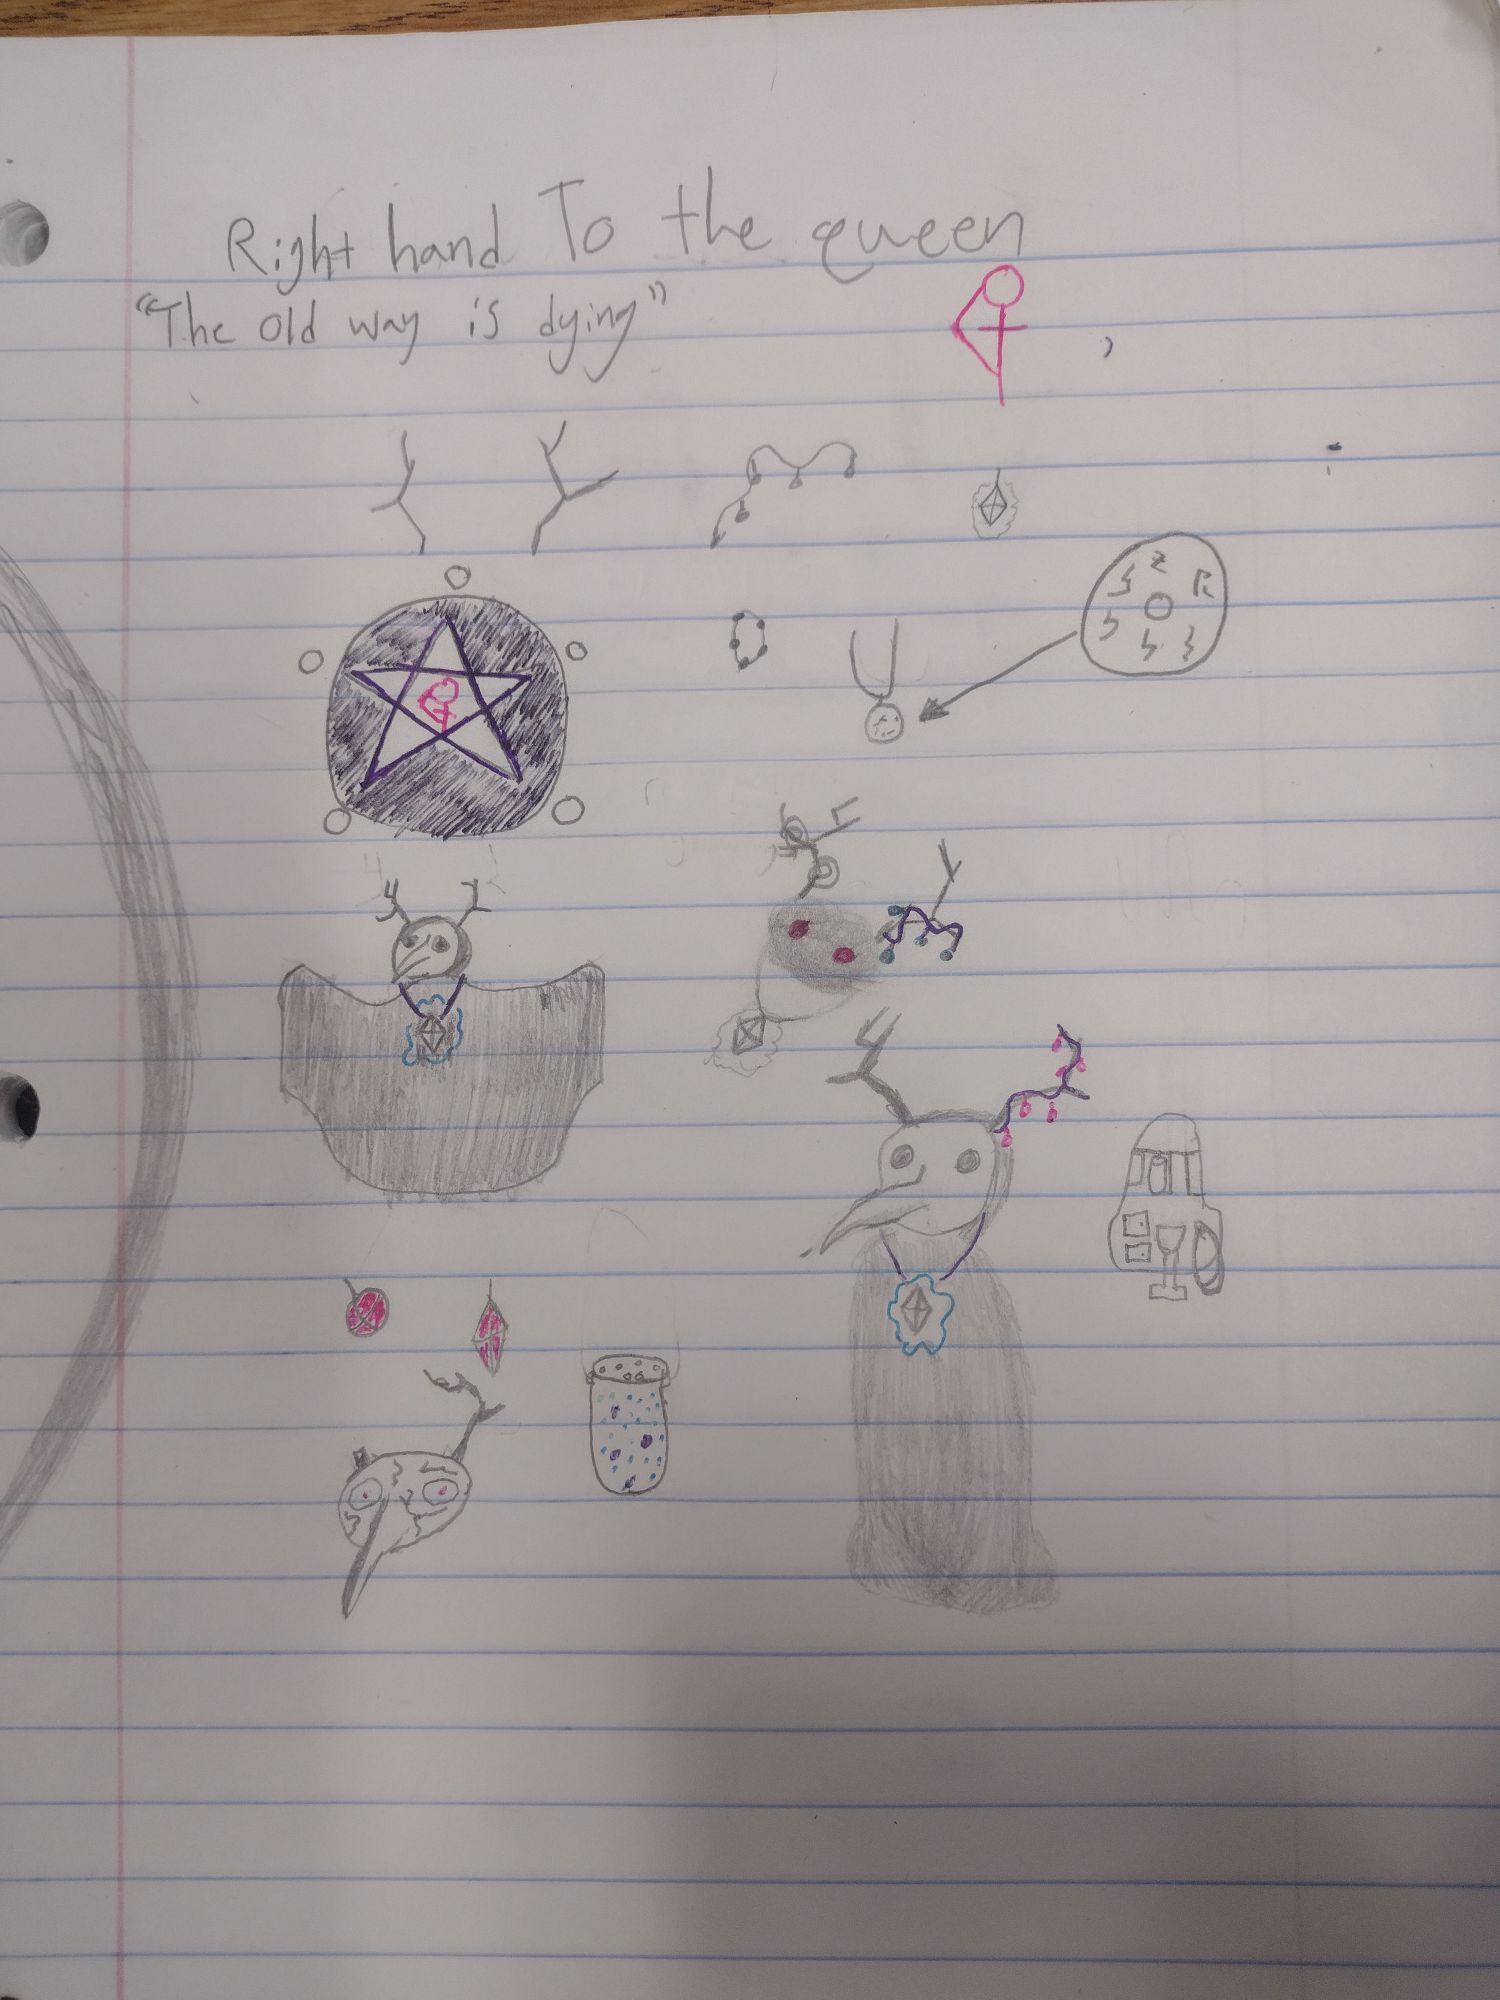 Right hand To the queen
"The old way is dying"